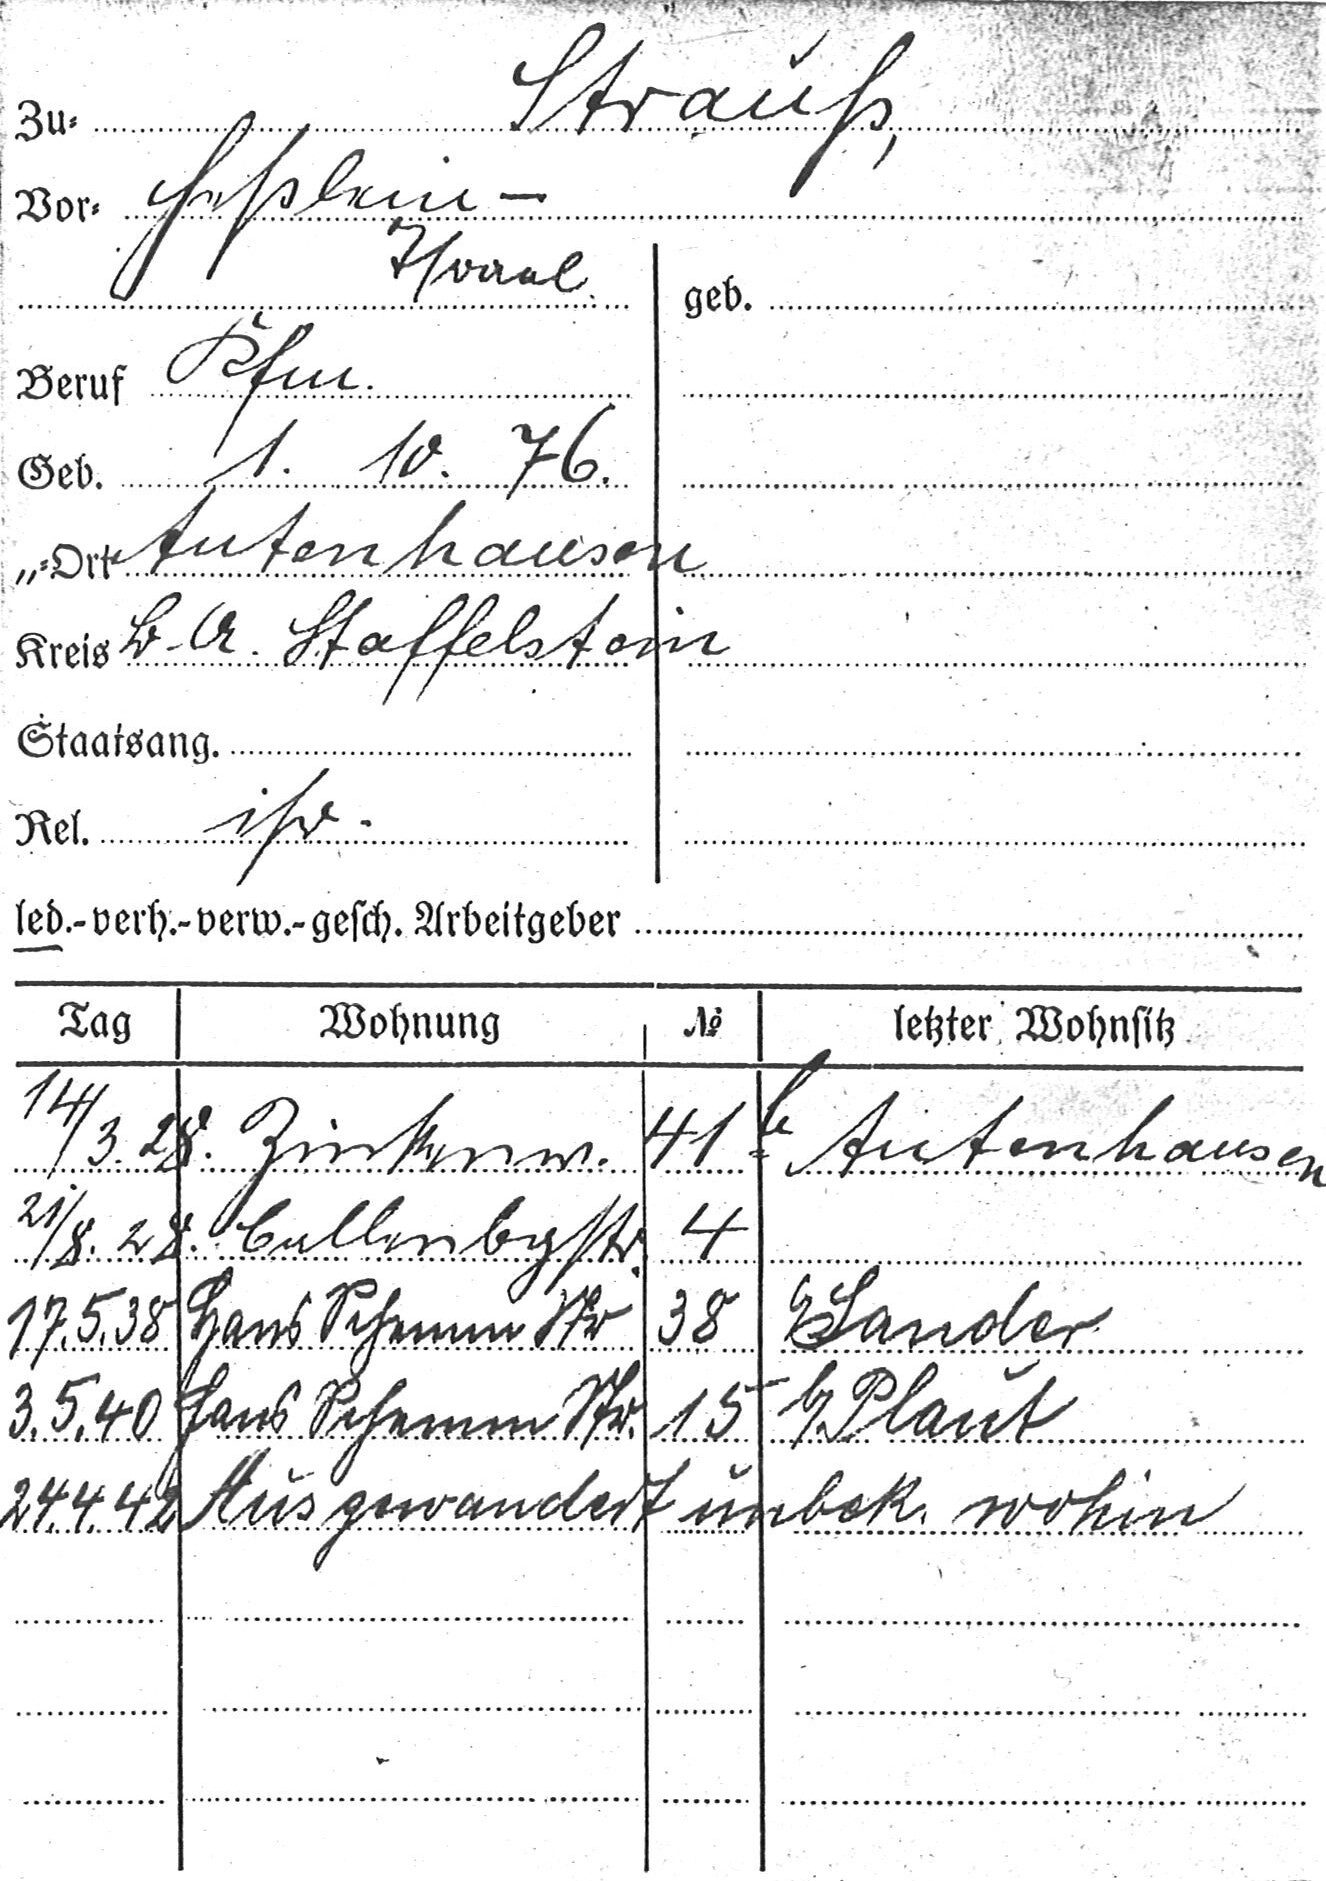 Zu- Strauß,
Vor- Heßlein -
Israel geb.
Beruf Kfm.
Geb. 1. 10. 76.
„-Ort Autenhausen
Kreis B.A. Staffelstein
Staatsang.
Rel. isr.
led.-verh.-verw.-gesch. Arbeitgeber
Tag Wohnung № letzter Wohnsitz
14/3. 28. Zinkenw. 41 b Autenhausen
21/8. 28. Callenbgstr. 4
17.5.38 Hans Schemm Str 38 b/Sander
3.5.40 Hans Schemm Str. 15 b/Plaut
24.4.42 Ausgewandert unbek. wohin